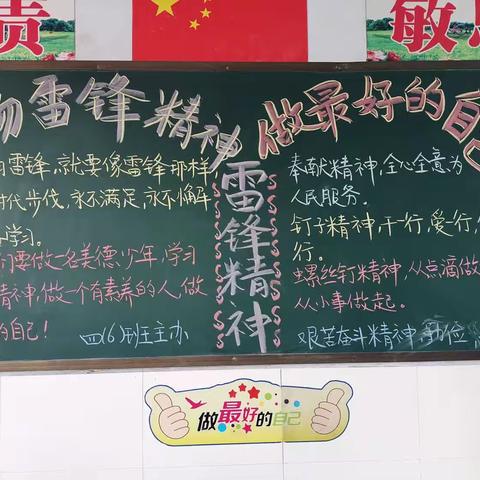 责
敏
雷锋精神
做最好的自己
雷锋，就要像雷锋那样，
代步伐，永不满足，永不懈
学习。
们要做一名美德少年，学习
精神，做一个有素养的人做
的自己！
四(6)班主办
雷锋精神
奉献精神，全心全意为
人民服务。
钉子精神，干一行，爱一行，
行。
螺丝钉精神，从点滴做
从小事做起。
艰苦奋斗精神，
做最好的自己